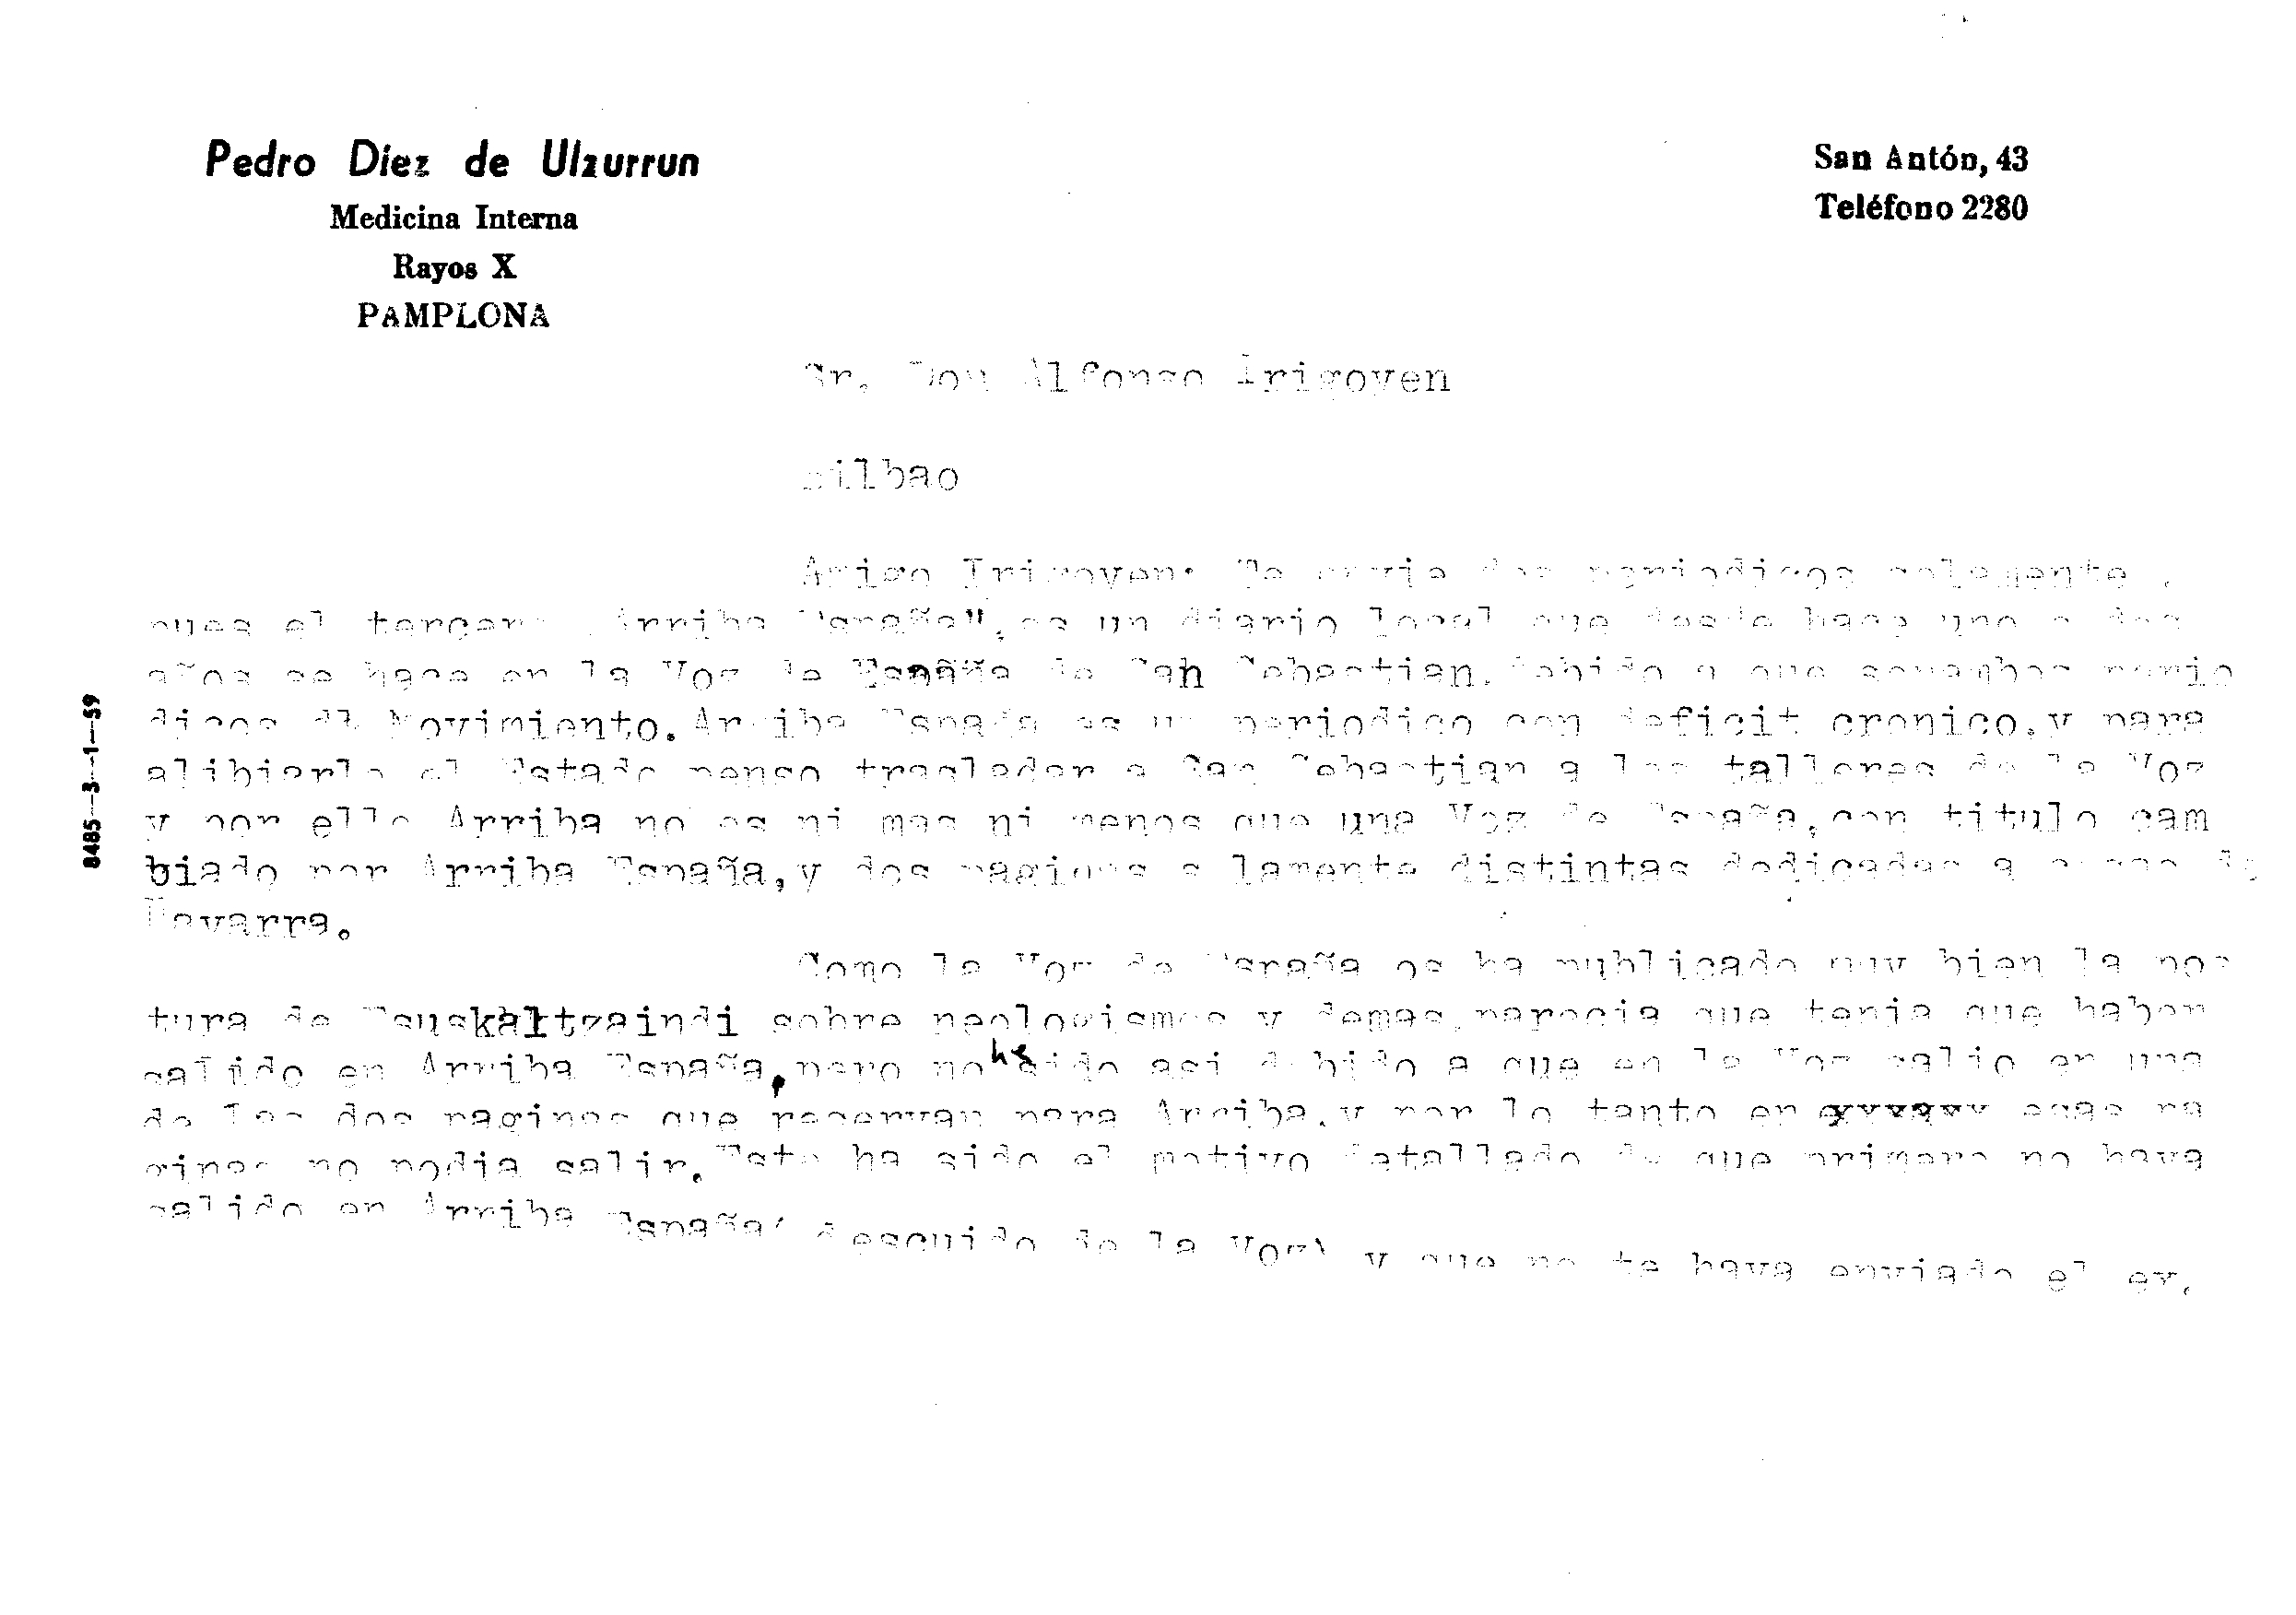 Pedro Díez de Ulzurrun
San Antón, 43
Medicina Interna
Teléfono 2280
Rayos X
PAMPLONA
Sr. Don Alfonso Irigoyen
Bilbao
Amigo Irigoyen: Te envio dos periodicos solamente,
pues el tercero, Arriba España", es un diario local que desde hace uno o dos
años se hace en la Voz de España de San Sebastian, debido a que son ambos perio
dicos del Movimiento. Arriba España es un periodico con deficit cronico, y para
alibiarlo el Estado penso trasladar a San Sebastian a los talleres de la Voz
y por ello Arriba no es ni mas ni menos que una Voz de España, con titulo cam
biado por Arriba España, y dos paginas solamente distintas dedicadas a cosas de
Navarra.
Como la Voz de España os ha publicado muy bien la pos
tura de Euskaltzaindi sobre neologismos y demas, parecia que tenia que haber
salido en Arriba España, pero no ha sido asi debido a que en la Voz salio en una
de las dos paginas que reservan para Arriba, y por lo tanto en esas pa
ginas no podia salir. Este ha sido el motivo detallado de que primero no haya
salido en Arriba España( descuido de la Voz) y que no te haya enviado el ex.
8485—3—1—59